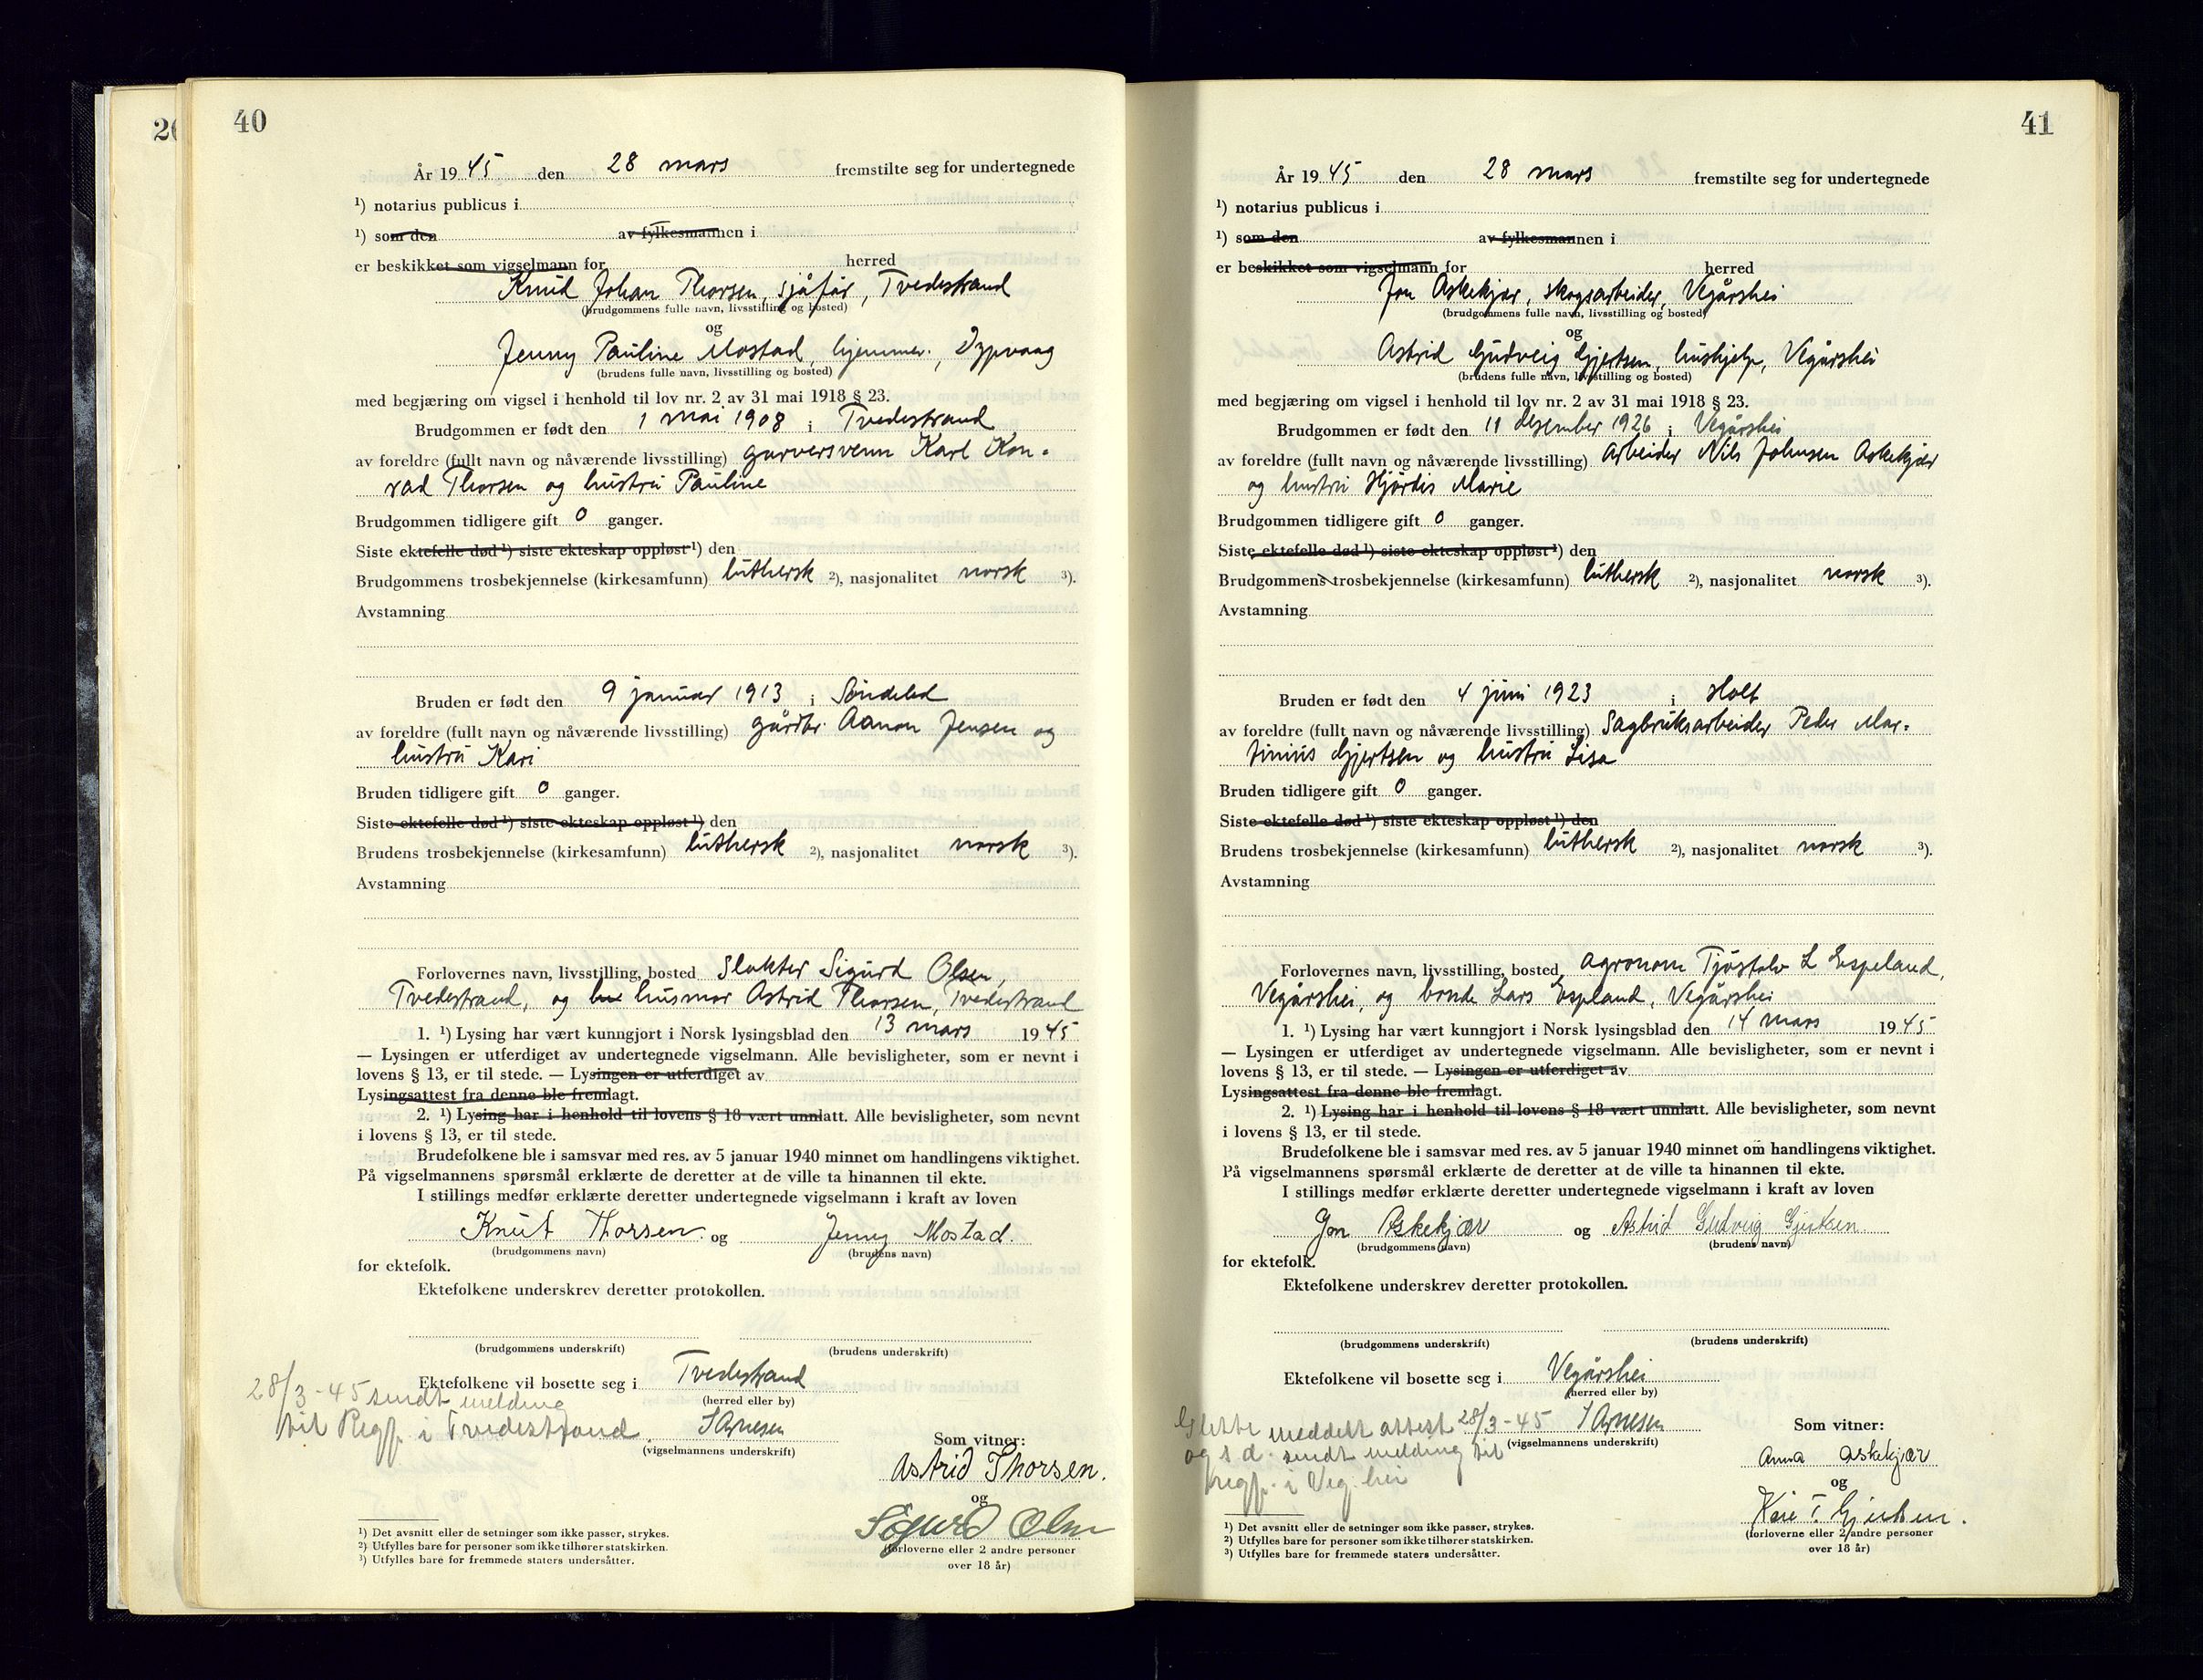 26
40
År 19 45 den 28 mars fremstilte seg for undertegnede
¹) notarius publicus i
¹) som den av fylkesmannen i
er beskikket som vigselmann for herred
Knut Johan Thorsen, sjåfør, Tvedestrand
(brudgommens fulle navn, livsstilling og bosted)
og
Jenny Pauline Mostad, hjemmev., Dypvaag
(brudens fulle navn, livsstilling og bosted)
med begjæring om vigsel i henhold til lov nr. 2 av 31 mai 1918 § 23.
Brudgommen er født den 1 mai 1908 i Tvedestrand
av foreldre (fullt navn og nåværende livsstilling) garversvenn Karl Kon-
rad Thorsen og hustru Pauline
Brudgommen tidligere gift 0 ganger.
Siste ektefelle død ¹) siste ekteskap oppløst ¹) den
Brudgommens trosbekjennelse (kirkesamfunn) luthersk ²), nasjonalitet norsk ³).
Avstamning
Bruden er født den 9 januar 1913 i Søndeled
av foreldre (fullt navn og nåværende livsstilling) gårdbr. Aanon Jensen og
hustru Kari
Bruden tidligere gift 0 ganger.
Siste ektefelle død ¹) siste ekteskap oppløst ¹) den
Brudens trosbekjennelse (kirkesamfunn) luthersk ²), nasjonalitet norsk ³).
Avstamning
Forlovernes navn, livsstilling, bosted Slakter Sigurd Olsen,
Tvedestrand, og husmor Astrid Thorsen, Tvedestrand
1. ¹) Lysing har vært kunngjort i Norsk lysingsblad den 13 mars 19 45
— Lysingen er utferdiget av undertegnede vigselmann. Alle bevisligheter, som er nevnt i
lovens § 13, er til stede. — Lysingen er utferdiget av
Lysingsattest fra denne ble fremlagt.
2. ¹) Lysing har i henhold til lovens § 18 vært unnlatt. Alle bevisligheter, som nevnt
i lovens § 13, er til stede.
Brudefolkene ble i samsvar med res. av 5 januar 1940 minnet om handlingens viktighet.
På vigselmannens spørsmål erklærte de deretter at de ville ta hinannen til ekte.
I stillings medfør erklærte deretter undertegnede vigselmann i kraft av loven
Knut Thorsen og Jenny Mostad.
(brudgommens navn) (brudens navn)
for ektefolk.
Ektefolkene underskrev deretter protokollen.
(brudgommens underskrift) (brudens underskrift)
Ektefolkene vil bosette seg i Tvedestrand
(herred eller by)
28/3-45 sendt melding
til Regf. i Tvedestrand.
S Arnesen
(vigselmannens underskrift)
Som vitner:
Astrid Thorsen.
og
Sigurd Olsen
(forloverne eller 2 andre personer
over 18 år)
¹) Det avsnitt eller de setninger som ikke passer, strykes.
²) Utfylles bare for personer som ikke tilhører statskirken.
³) Utfylles bare for fremmede staters undersåtter.
41
År 19 45 den 28 mars fremstilte seg for undertegnede
¹) notarius publicus i
¹) som den av fylkesmannen i
er beskikket som vigselmann for herred
Jon Askekjær, skogsarbeider, Vegårshei
(brudgommens fulle navn, livsstilling og bosted)
og
Astrid Gudveig Gjertsen, hushjelp, Vegårshei
(brudens fulle navn, livsstilling og bosted)
med begjæring om vigsel i henhold til lov nr. 2 av 31 mai 1918 § 23.
Brudgommen er født den 11 desember 1926 i Vegårshei
av foreldre (fullt navn og nåværende livsstilling) arbeider Nils Johnsen Askekjær
og hustru Hjördis Marie
Brudgommen tidligere gift 0 ganger.
Siste ektefelle død ¹) siste ekteskap oppløst ¹) den
Brudgommens trosbekjennelse (kirkesamfunn) luthersk ²), nasjonalitet norsk ³).
Avstamning
Bruden er født den 4 juni 1923 i Holt
av foreldre (fullt navn og nåværende livsstilling) Sagbruksarbeider Peder Mar-
tinius Gjertsen og hustru Lisa
Bruden tidligere gift 0 ganger.
Siste ektefelle død ¹) siste ekteskap oppløst ¹) den
Brudens trosbekjennelse (kirkesamfunn) luthersk ²), nasjonalitet norsk ³).
Avstamning
Forlovernes navn, livsstilling, bosted agronom Tjøstolv L Espeland,
Vegårshei, og bonde Lars Espland, Vegårshei
1. ¹) Lysing har vært kunngjort i Norsk lysingsblad den 14 mars 19 45
— Lysingen er utferdiget av undertegnede vigselmann. Alle bevisligheter, som er nevnt i
lovens § 13, er til stede. — Lysingen er utferdiget av
Lysingsattest fra denne ble fremlagt.
2. ¹) Lysing har i henhold til lovens § 18 vært unnlatt. Alle bevisligheter, som nevnt
i lovens § 13, er til stede.
Brudefolkene ble i samsvar med res. av 5 januar 1940 minnet om handlingens viktighet.
På vigselmannens spørsmål erklærte de deretter at de ville ta hinannen til ekte.
I stillings medfør erklærte deretter undertegnede vigselmann i kraft av loven
Jon Askekjær og Astrid Gudveig Gjertsen
(brudgommens navn) (brudens navn)
for ektefolk.
Ektefolkene underskrev deretter protokollen.
(brudgommens underskrift) (brudens underskrift)
Ektefolkene vil bosette seg i Vegårshei
(herred eller by)
meddelt attest 28/3-45
og s d. sendt melding til
regf. i Veg.hei
S Arnesen
(vigselmannens underskrift)
Som vitner:
Anna Askekjær
og
T. Gjertsen.
(forloverne eller 2 andre personer
over 18 år)
¹) Det avsnitt eller de setninger som ikke passer, strykes.
²) Utfylles bare for personer som ikke tilhører statskirken.
³) Utfylles bare for fremmede staters undersåtter.